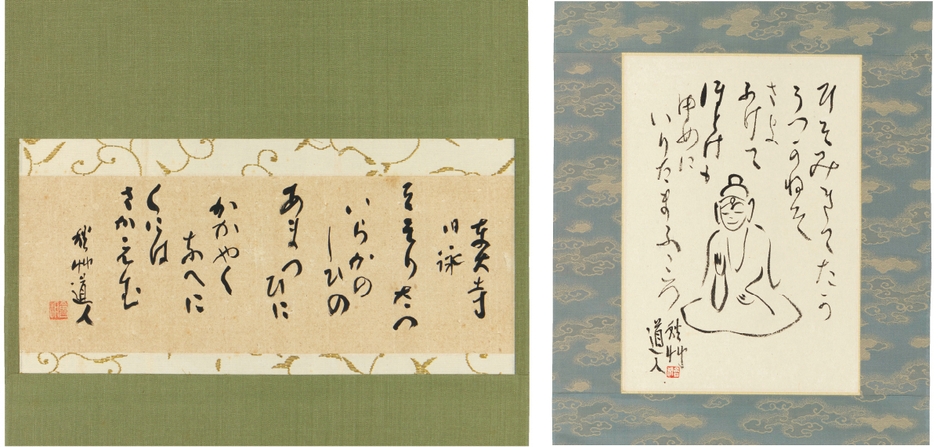 東大寺
旧詠
そそりたつ
いらかの
しひの
あまつひに
かかやく
なへに
くには
さかえむ
秋艸道人
ひそみきてたか
うつかねそ
さよ
ふけて
ほとけも
ゆめに
いりたまふころ
秋艸
道人